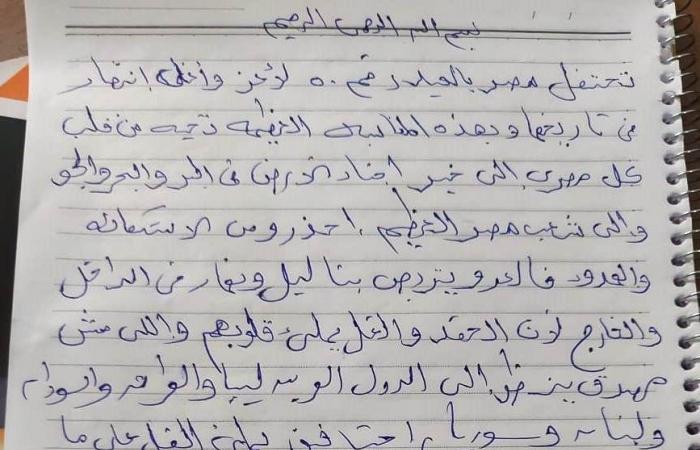 بسم الله الرحمن الرحيم
تحتفل مصر بالعيد رقم ٥٠ لأعز وأغلى انتصار
فى تاريخها وبهذه المناسبه العظيمه تحيه من قلب
كل مصرى الى خير اجناد الارض فى البر والبحر والجو
والى شعب مصر العظيم. احذروس الاستكانه
والهدوء فالعدو يتربص بنا ليل ونهار من الداخل
والخارج لأن الحقد والغل يملىء قلوبهم واللى مش
مصدق ينظر الى الدول العربيه ليبيا والعراق والسودان
ولبنان وسوريا احنا فى على ما